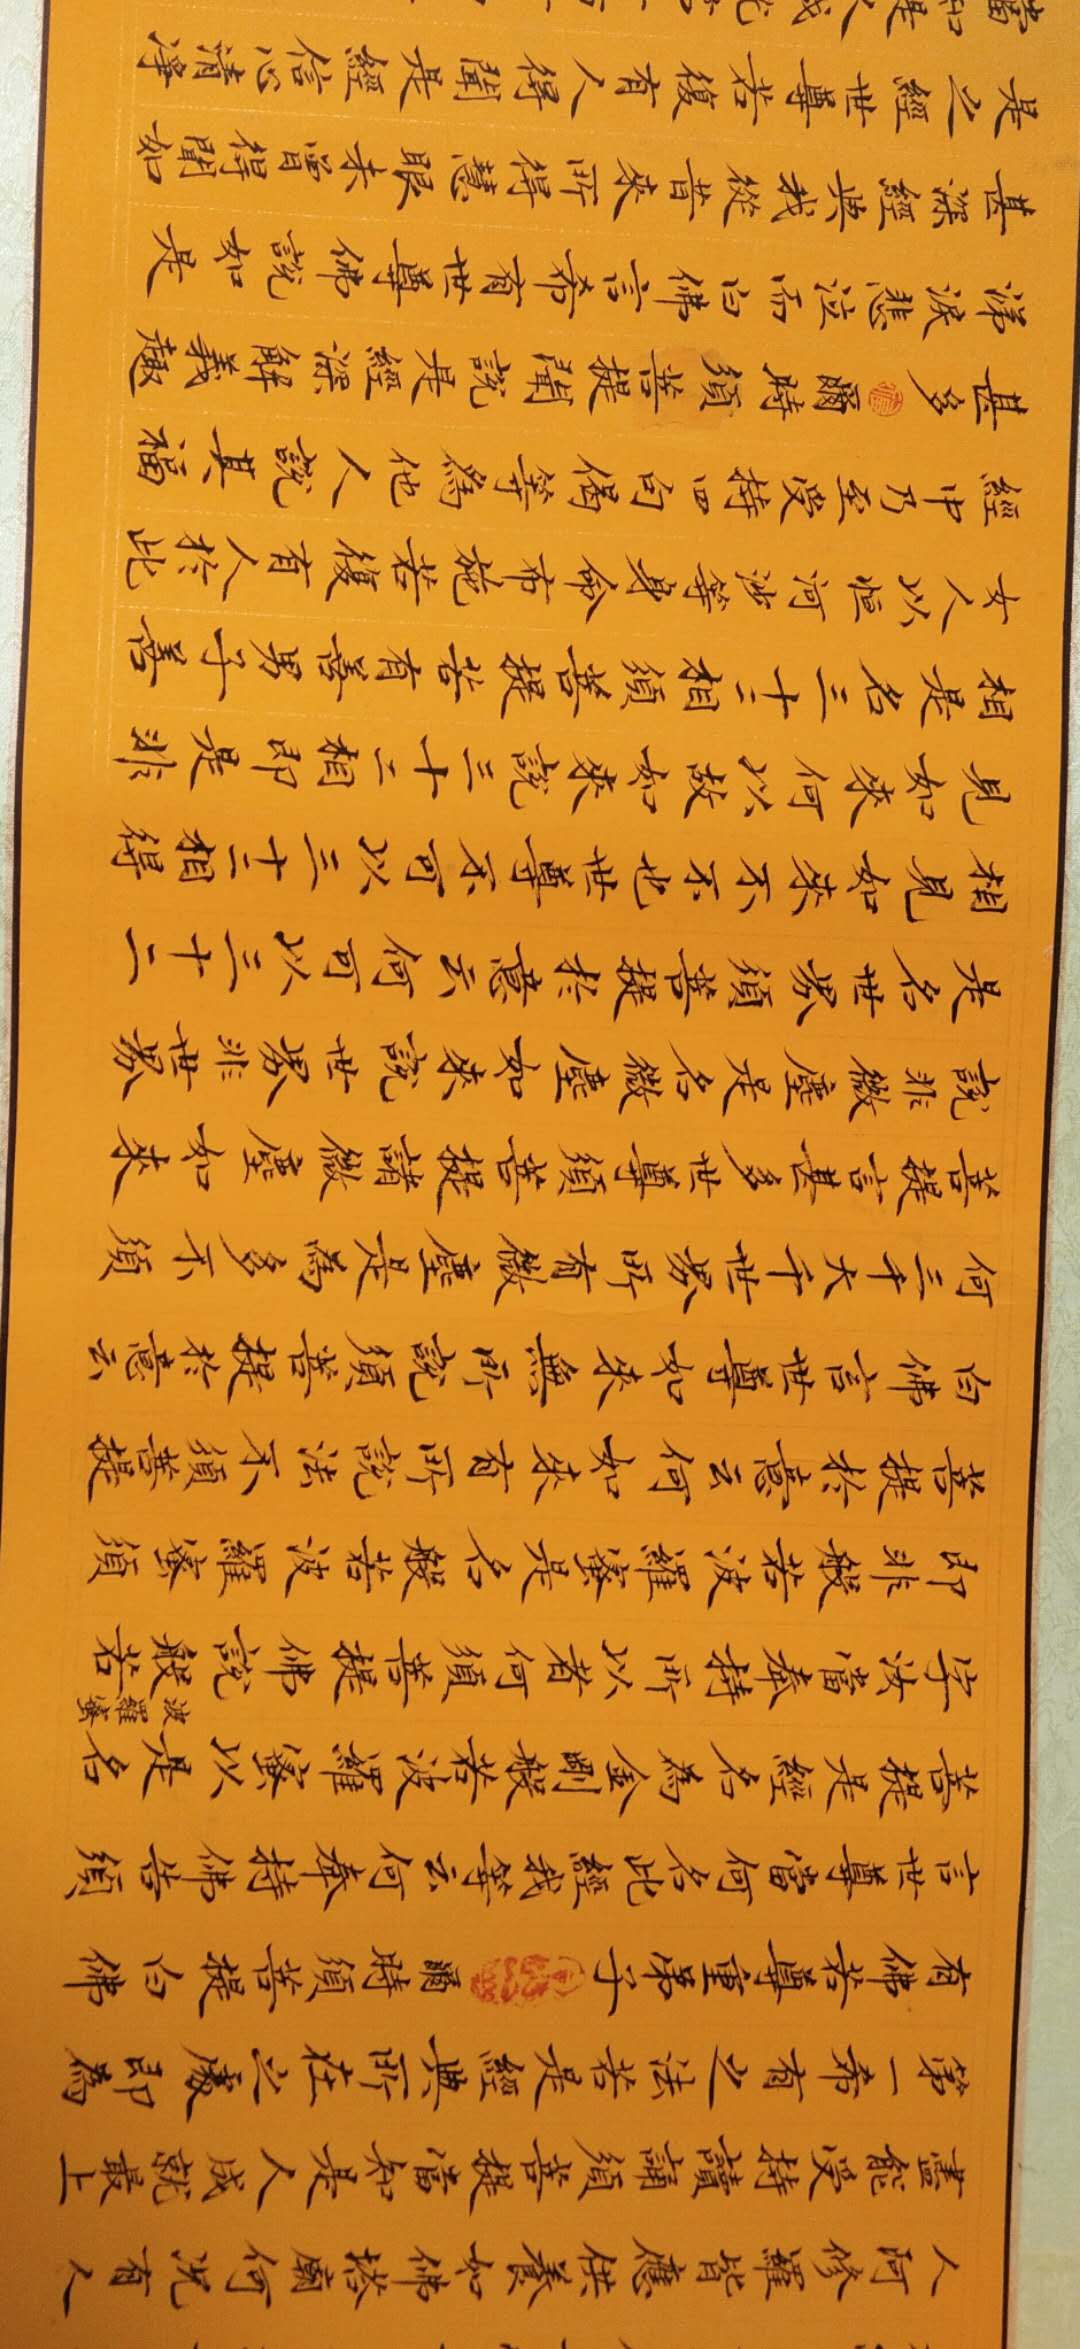 人阿修羅皆應供養如佛塔廟何況有人
盡能受持讀誦須菩提當知是人成就最上
第一希有之法若是經典所在之處即為
有佛若尊重弟子爾時須菩提白佛
言世尊當何名此經我等云何奉持佛告須
菩提是經名為金剛般若波羅蜜以是名
字汝當奉持所以者何須菩提佛說般若
波羅蜜
即非般若波羅蜜是名般若波羅蜜須
菩提於意云何如來有所說法不須菩提
白佛言世尊如來無所說須菩提於意云
何三千大千世界所有微塵是為多不須
菩提言甚多世尊須菩提諸微塵如來
說非微塵是名微塵如來說世界非世界
是名世界須菩提於意云何可以三十二
相見如來不不也世尊不可以三十二相得
見如來何以故如來說三十二相即是非
相是名三十二相須菩提若有善男子善
女人以恒河沙等身命布施若復有人於此
經中乃至受持四句偈等爲他人說其福
甚多爾時須菩提聞說是經深解義趣
涕淚悲泣而白佛言希有世尊佛說如是
甚深經典我從昔來所得慧眼未曾得聞如
是之經世尊若復有人得聞是經信心清淨
當知是人成